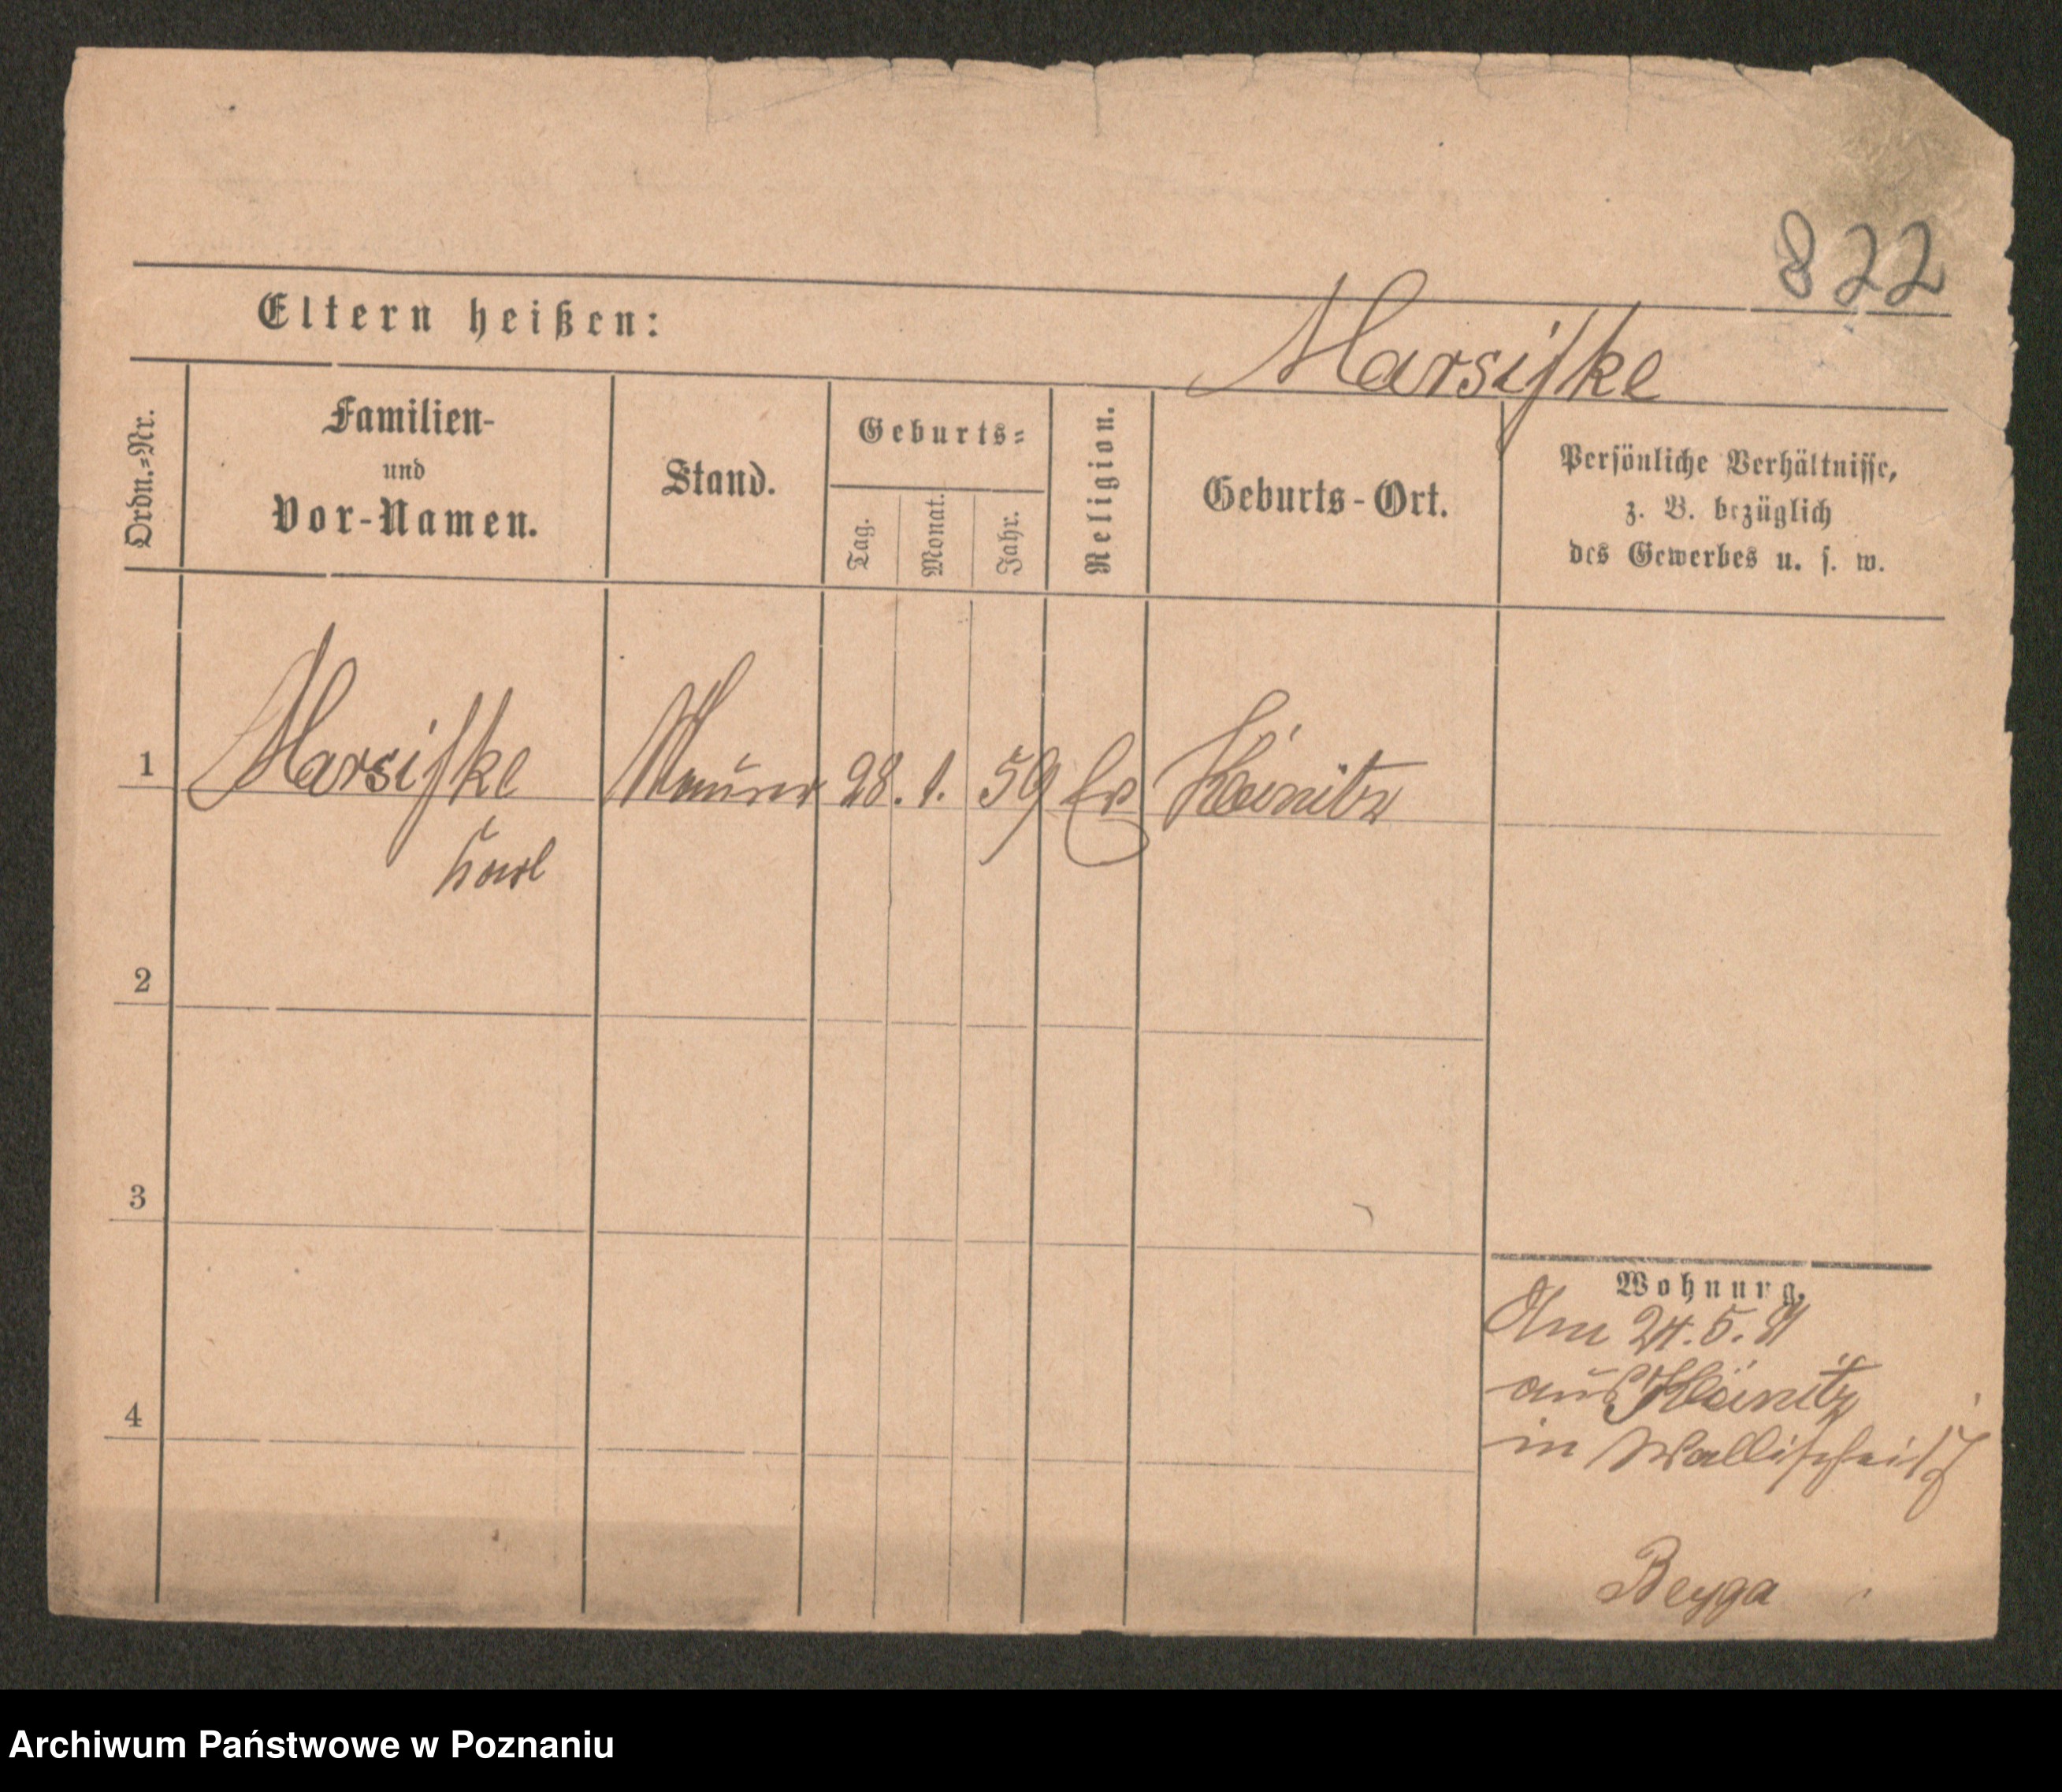 822
Eltern heißen:
Marsiske
Ordn.=Nr.
Familien-
und
Vor-Namen.
Stand.
Geburts=
Tag.
Monat.
Jahr.
Religion.
Geburts-Ort.
Persönliche Verhältnisse,
z. B. bezüglich
des Gewerbes u. s. w.
1 Marsiske Maurer 28. 1. 59 Ev
Karl
2
3
Wohnung.
Am 24. 5. 81
aus
in Wallischei
4
Beyga
Archiwum Państwowe w Poznaniu